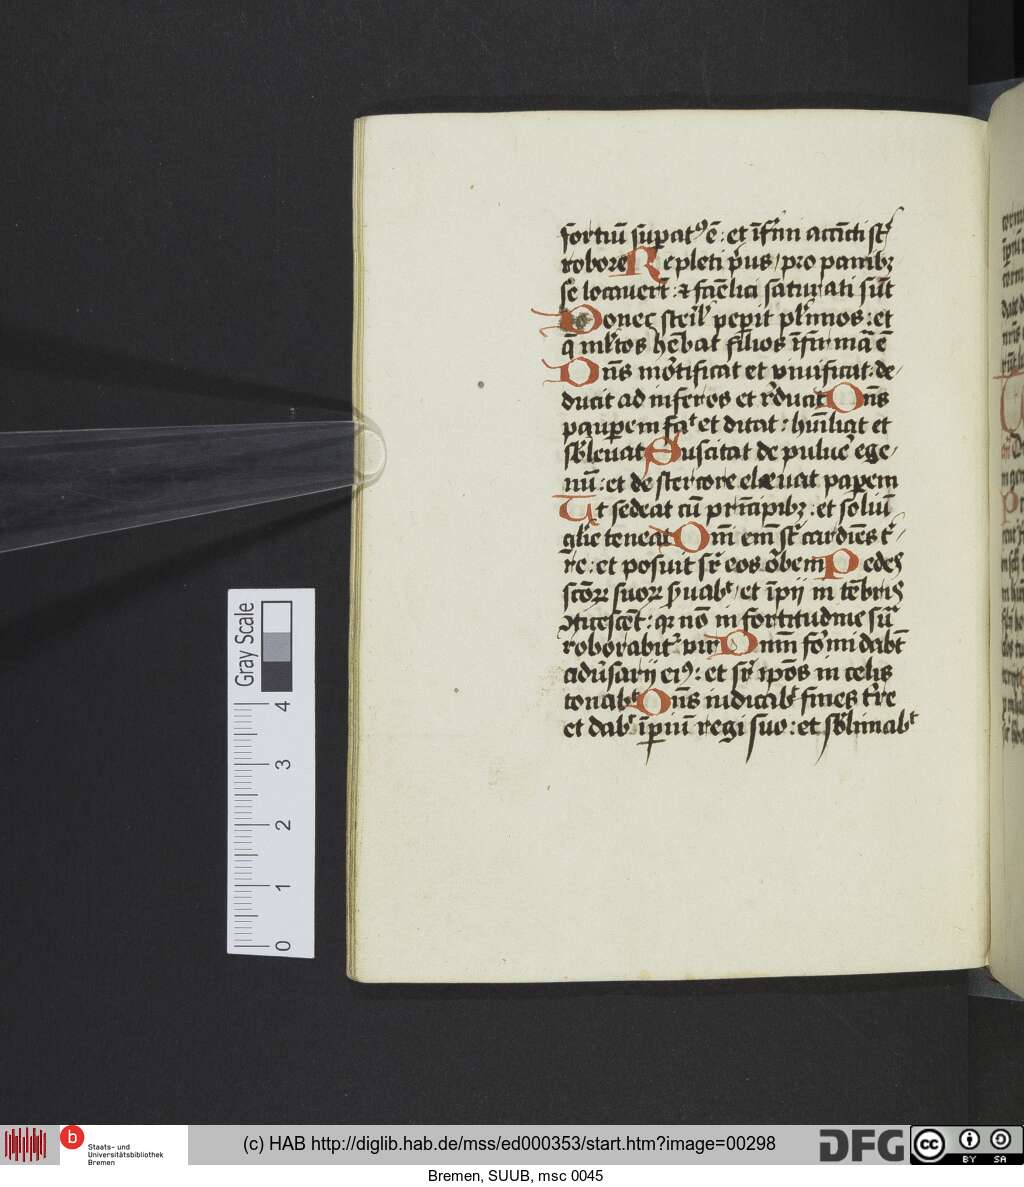 fortiū supatꝰ ē : et īfrmi accīcti st̄
robore Repleti prius / pro panibꝫ
se locauert̄ : ⁊ famelici saturati sūt
Donec steril' pepit pl'imos : et
q̄ ml'tos hēbat filios īfirmata ē
Dn̄s mortificat et viuificat : de/
ducit ad inferos et reducit Dn̄s
paupem fac̄ et ditat : humiliat et
subleuat Suscitat de puluē ege/
nū : et de stercore eleuat papem
Ut sedeat cū prīcipibꝫ : et soliū
glīe teneat Dnī em̄ st̄ cardies tr̄/
re : et posuit sr̄ eos orbem Pedes
scōꝝ suoꝝ ẜuabᵗ / et īpij in tēbris
ꝯticescēt : qꝛ nō in fortitudine sua
roborabit² vir Dnm̄ formi dabūt
aduersarij eiꝰ : et sr̄ ip̄os in celis
tonabᵗ Dn̄s iudicabᵗ fines tr̄re
et dabᵗ īpiū regi suo : et sublimabᵗ
Gray Scale
4
3
2
1
0
b
Staats- und
Universitätsbibliothek
Bremen
(c) HAB http://diglib.hab.de/mss/ed000353/start.htm?image=00298
DFG
cc
BY SA
Bremen, SUUB, msc 0045